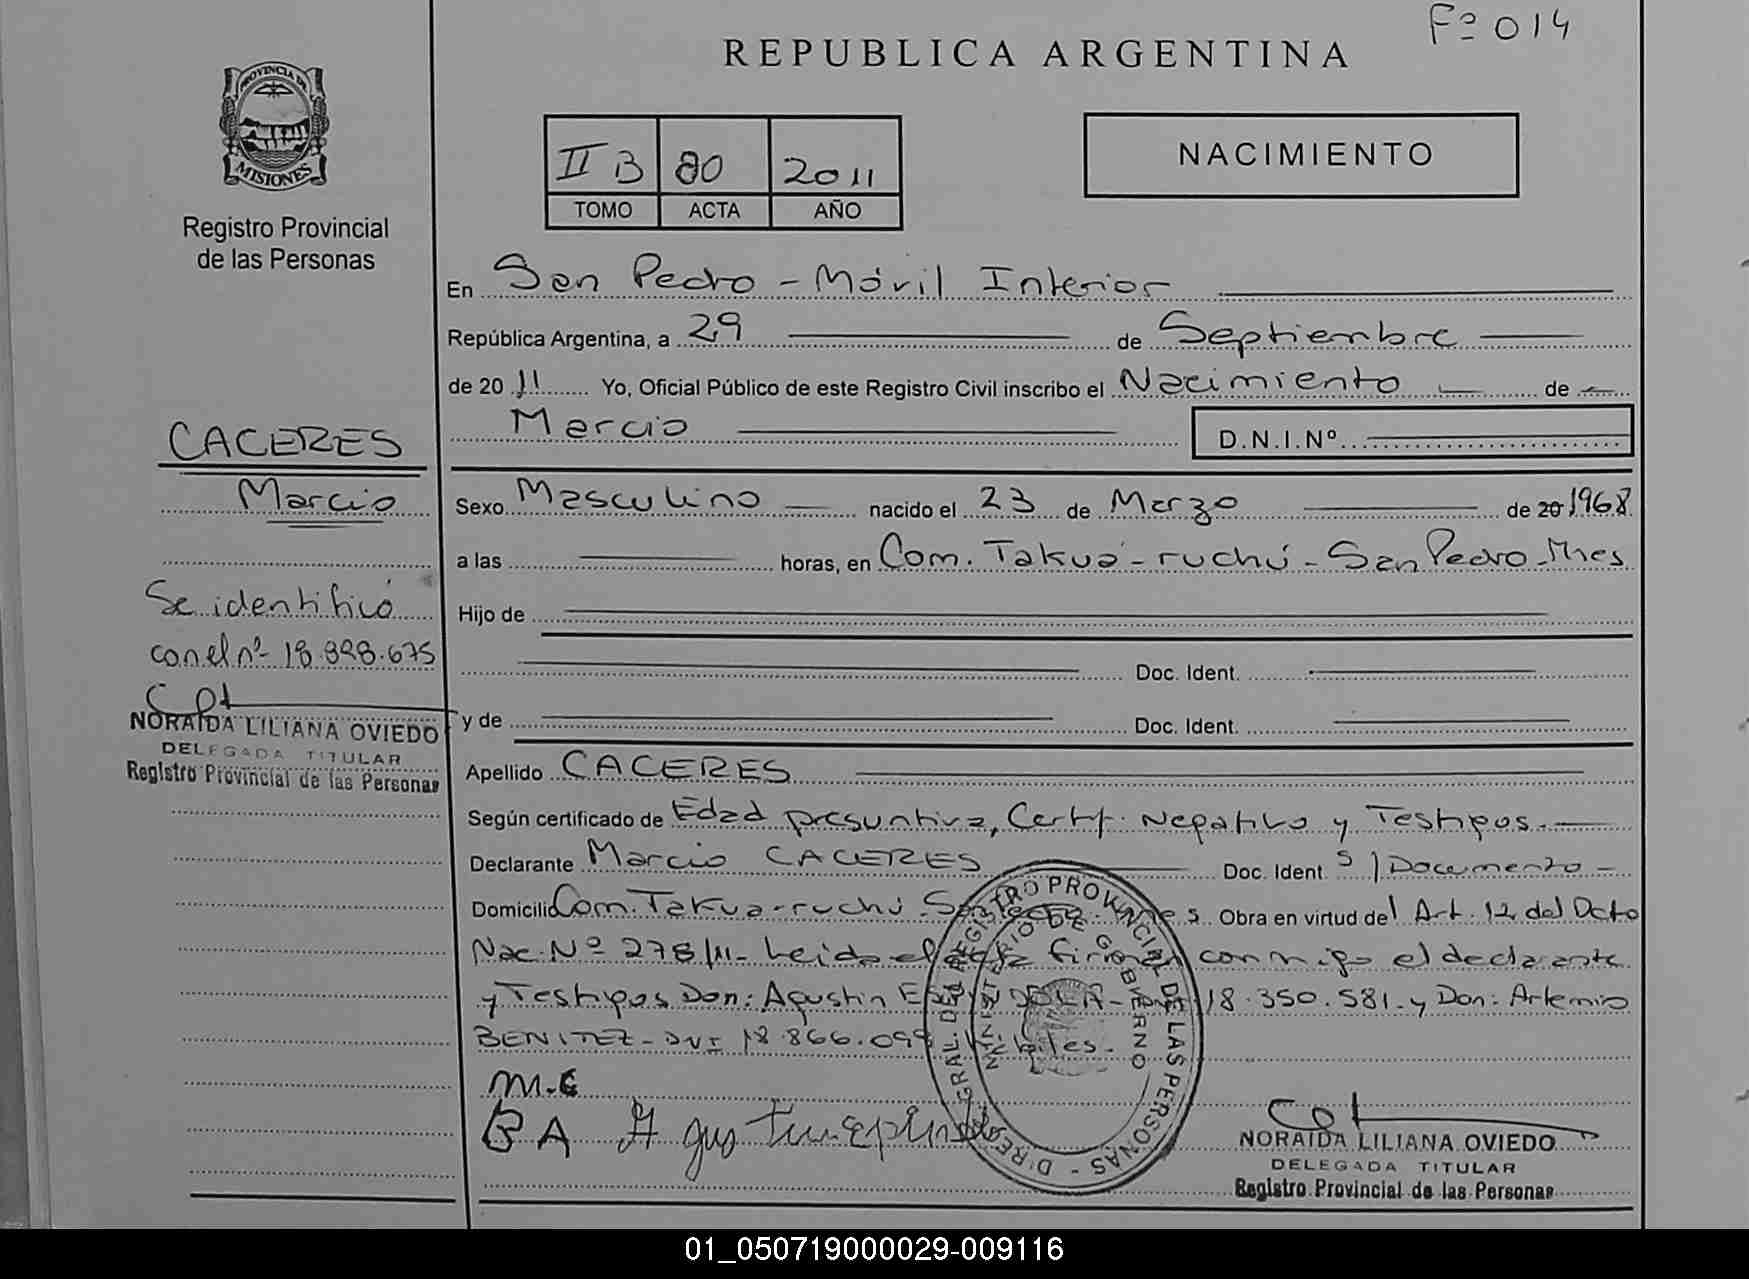 Fº 014
REPUBLICA ARGENTINA
PROVINCIA DE
MISIONES
Registro Provincial
de las Personas
II B 80 2011
TOMO ACTA AÑO
NACIMIENTO
En San Pedro - Móvil Interior
República Argentina, a 29 de Septiembre
de 20 11 Yo, Oficial Público de este Registro Civil inscribo el Nacimiento de
Marcio D.N.I.Nº
CACERES
Marcio
Sexo Masculino nacido el 23 de Marzo de 20 1968
a las horas, en Com. Takuá-ruchú - San Pedro - Mnes
Se identificó
con el nº 18.898.675
NORAIDA LILIANA OVIEDO
DELEGADA TITULAR
Registro Provincial de las Personas
Hijo de
Doc. Ident.
y de Doc. Ident.
Apellido CACERES
Según certificado de Edad presuntiva, Certf. Negativo y Testigos.
Declarante Marcio CACERES Doc. Ident S/Documento -
Domicilio Com. Takua-ruchú - San Pedro - Mnes. Obra en virtud del Art. 12 del Dcto
Nac. Nº 278/11 - Leida el acta firman conmigo el declarante
y Testigos Don: Agustin 18.350.581 y Don: Artemio
BENITEZ - DNI 18.866.099 hábiles.
M.C
B A Agustin
DIREC. GRAL. DEL REGISTRO PROVINCIAL DE LAS PERSONAS
MINISTERIO DE GOBIERNO
NORAIDA LILIANA OVIEDO
DELEGADA TITULAR
Registro Provincial de las Personas
01_050719000029-009116